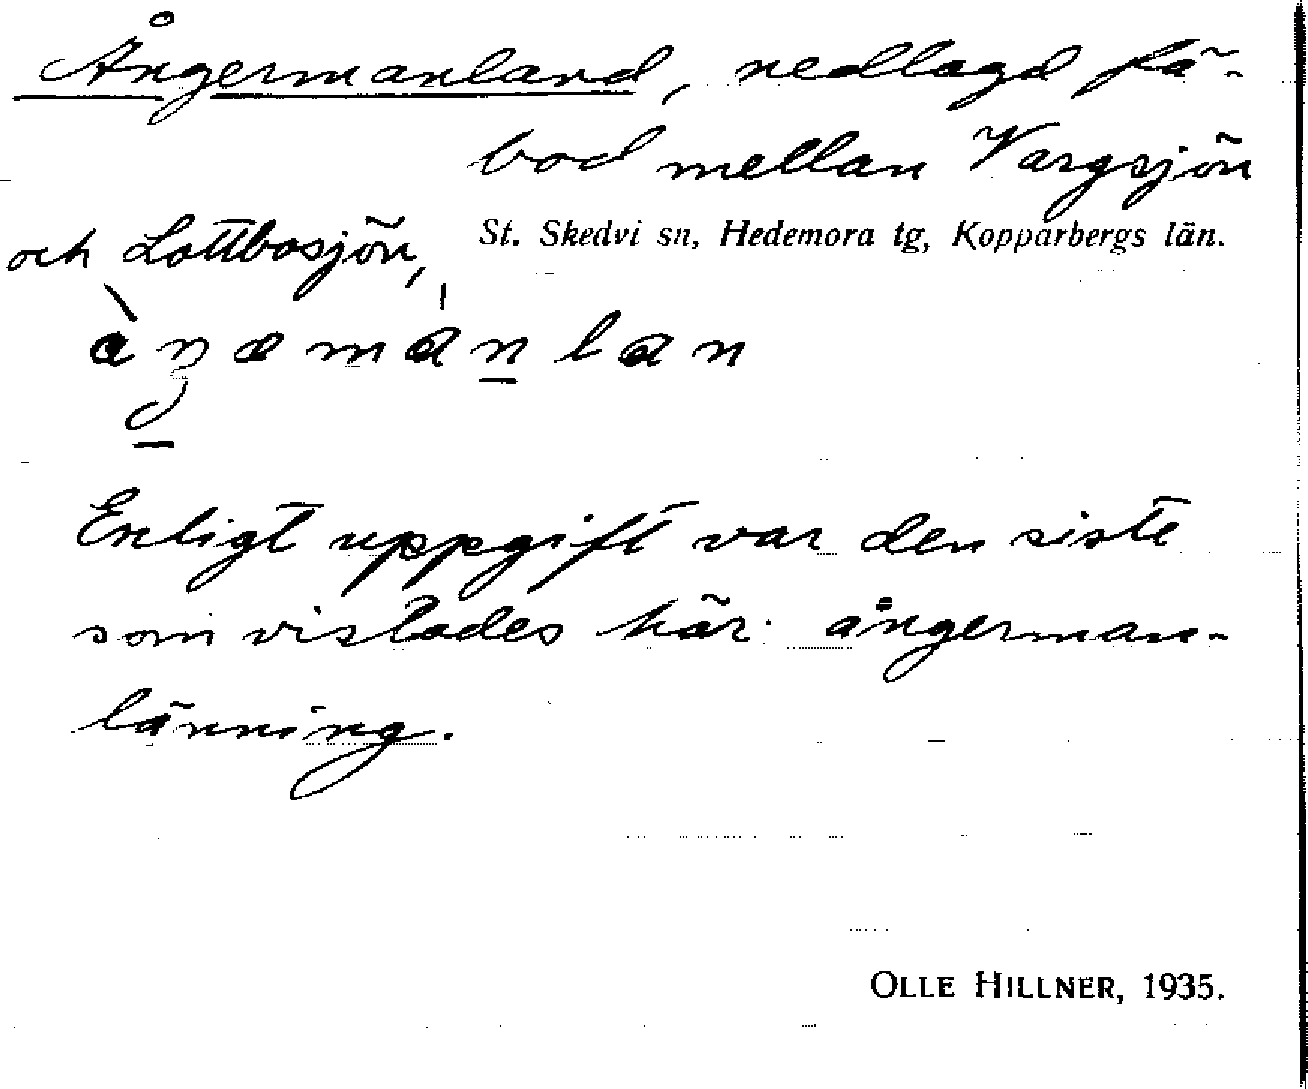 Ångermanland, nedlagd fä-
bod mellan Vargsjön
och Lottbosjön,
St. Skedvi sn, Hedemora tg, Kopparbergs län.
Enligt uppgift var den siste
som vistades här ångerman-
länning.
OLLE HILLNER, 1935.